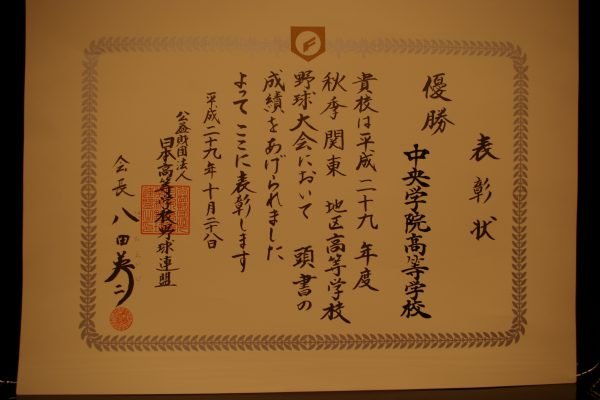 表彰状
優勝
中央学院高等学校
貴校は平成二十九年度
秋季関東地区高等学校
野球大会において頭書の
成績をあげられました
よってここに表彰します
平成二十九年十月二十八日
公益財団法人
日本高等学校野球連盟
会長 八田英二